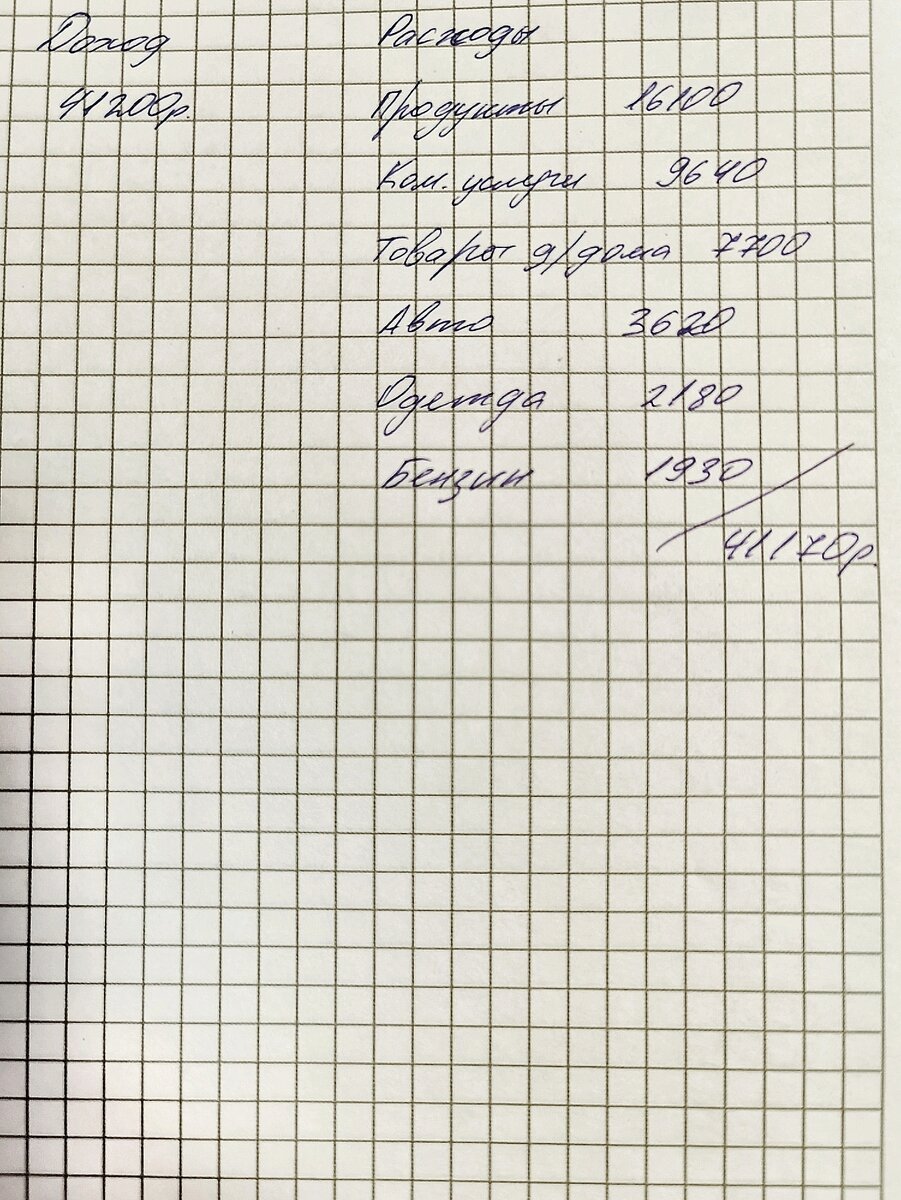 Доход Расходы
41200р. Продукты 16100
Ком. услуги 9640
Товары д/дома 7700
Авто 3620
Одежда 2180
Бензин 1930
41170р.